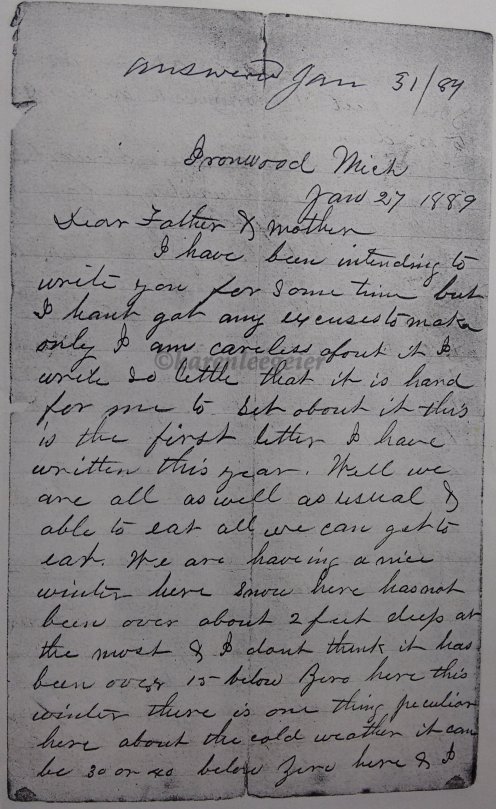 answered Jan 31/89
Ironwood Mich
Jan 27 1889
Dear Father & mother
I have been intending to
write you for some time but
I hant got any excuses to make
only I am careless about it I
©karenleegeier
write so little that it is hard
for me to set about it this
is the first letter I have
written this year. Well we
are all as well as usual &
able to eat all we can get to
eat. We are haveing a nice
winter here snow here has not
been over about 2 feet deep at
the most & I dont think it has
been over 15 below Zero here this
winter there is one thing peculiar
here about the cold weather it can
be 30 or 40 below Zero here & I